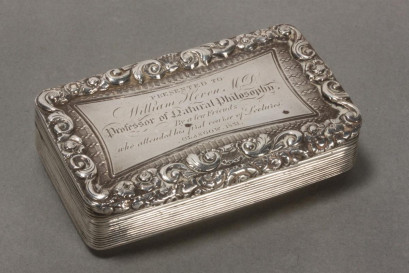 PRESENTED TO
William Heron, M.D.
Professor of Natural Philosophy
By a few Friends
who attended his first course of Lectures.
GLASGOW